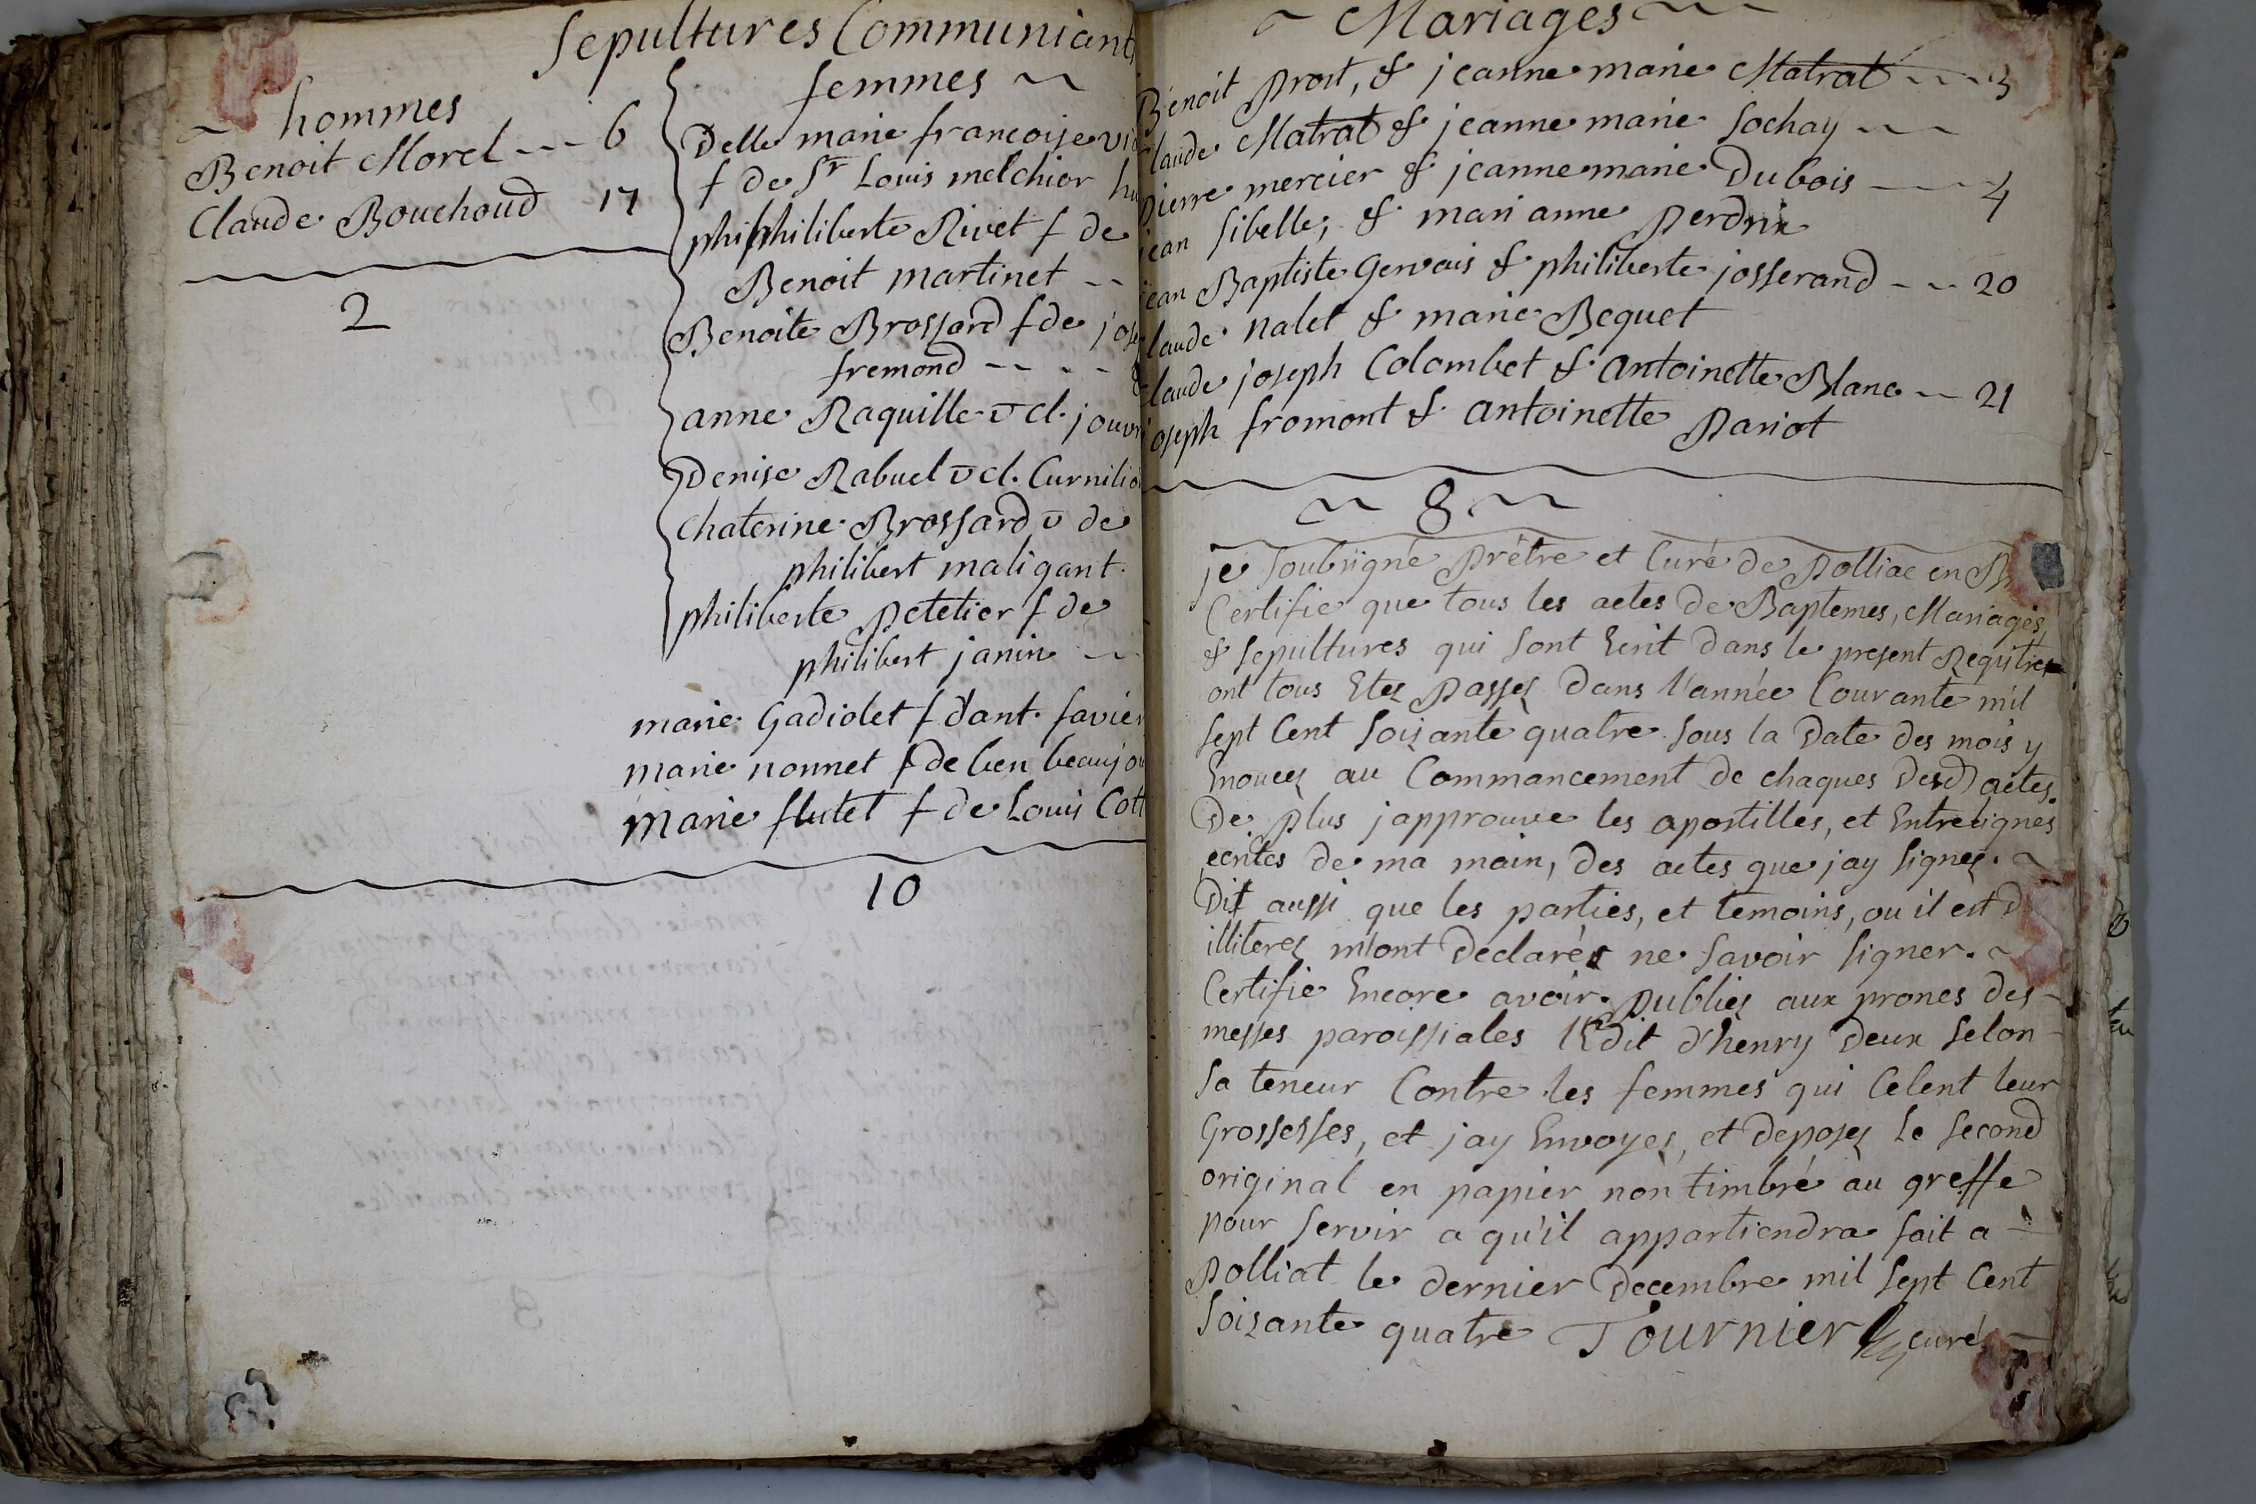 Sepultures Communiants
hommes
Benoit Morel 6
Claude Bouchoud 17
2
femmes
Delle marie francoise
f de Sr Louis melchior
philiberte Rivet f de
Benoit martinet
Benoite Brossard f de
fremond
anne Raquille v cl.
Denise Rabuel v cl.
Chaterine Brossard v de
philibert maligant
philiberte Petetier f de
philibert janin
marie Gadiolet f d'ant. favier
marie nonnet f de ben
Marie flutet f de Louis
10
Mariages
Benoit Prost, & jeanne marie Matrat 3
laude Matrat & jeanne marie Sochay
pierre mercier & jeanne marie Dubois 4
jean Sibelle, & mari anne Perdrix
jean Baptiste Gervais & philiberte josserand 20
laude nalet & marie Bequet
laude joseph Colombet & antoinette Blanc 21
oseph fromont & antoinette Pariot
8
je Soubsigné Prêtre et Curé de Polliac en
Certifie que tous les actes de Baptemes, Mariages,
& sepultures qui sont Ecrit dans le present Regitre
ont tous Etez Passez dans l'année Courante mil
sept Cent Soixante quatre sous la Date des mois y
Enoncez au Commancement de chaques desd actes.
De plus japprouve les apostilles, et Entrelignes
ecrites de ma main, des actes que jay signez.
Dit aussi que les parties, et temoins, ou il est
illiterez m'ont declarés ne savoir signer.
Certifie Encore avoir Publiez aux prones des
messes paroissiales l'Edit d'henry deux selon
sa teneur Contre les femmes qui Celent leur
Grossesses, et jay Envoyez, et deposez le second
original en papier non timbré au greffe
pour servir a qu'il appartiendra fait a
Polliat le dernier Decembre mil sept Cent
Soixante quatre Tournier curé